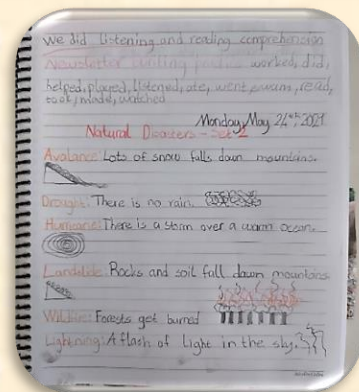 We did listening and reading comprehension
Newsletter writing worked, did,
helped, played, listened, ate, went swam, read,
took, made, watched
Monday, May 24th 2021
Natural Disasters - Set 2
Avalance: Lots of snow falls down mountains.
Drought: There is no rain.
Hurricane: There is a storm over a warm ocean.
Landslide: Rocks and soil fall down mountains.
Wildfire: Forests get burned
Lightning: A flash of light in the sky.